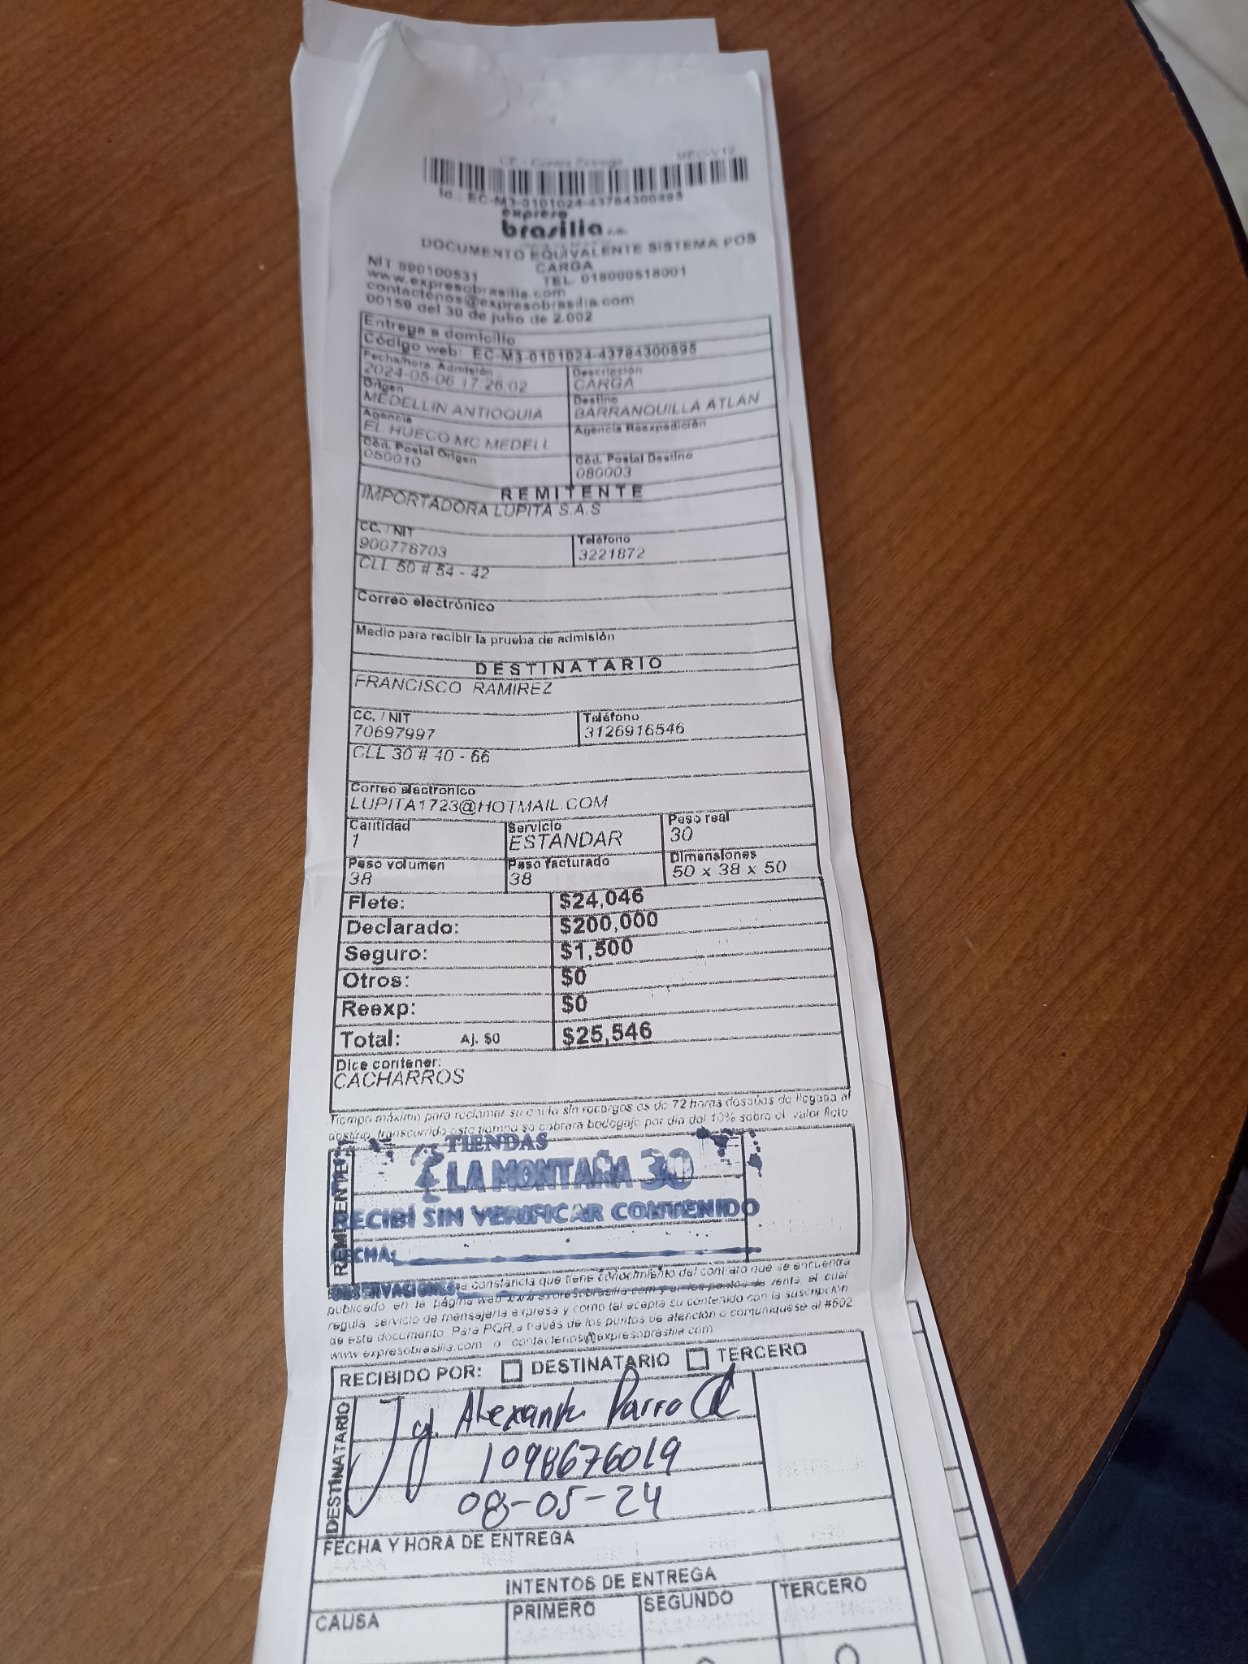 CE - Contra Entrega MPC-V12
Id.: EC-M3-0101024-43784300895
expreso
brasilia S.A.
DOCUMENTO EQUIVALENTE SISTEMA POS
CARGA
NIT 890100531 TEL. 018000518001
www.expresobrasilia.com
contactenos@expresobrasilia.com
00159 del 30 de julio de 2.002
Entrega a domicilio
Código web: EC-M3-0101024-43784300895
Fecha/hora. Admisión Descripción
2024-05-06 17:26:02 CARGA
Origen Destino
MEDELLIN ANTIOQUIA BARRANQUILLA ATLAN
Agencia Agencia Reexpedición
EL HUECO MC MEDELL
Cód. Postal Origen Cód. Postal Destino
050010 080003
REMITENTE
IMPORTADORA LUPITA S.A.S
CC. / NIT Teléfono
900778703 3221872
CLL 50 # 54 - 42
Correo electrónico
Medio para recibir la prueba de admisión
DESTINATARIO
FRANCISCO RAMIREZ
CC. / NIT Teléfono
70697997 3126916546
CLL 30 # 40 - 66
Correo electronico
LUPITA1723@HOTMAIL.COM
Cantidad Servicio Peso real
1 ESTANDAR 30
Peso volumen Peso facturado Dimensiones
38 38 50 x 38 x 50
Flete: $24,046
Declarado: $200,000
Seguro: $1,500
Otros: $0
Reexp: $0
Total: Aj. $0 $25,546
Dice contener:
CACHARROS
Tiempo máximo para reclamar su envío sin recargos es de 72 horas después de llegada al
destino, transcurrido este tiempo se cobrara bodegaje por día del 10% sobre el valor flete
REMITENTE
TIENDAS
LA MONTAÑA 30
RECIBÍ SIN VERIFICAR CONTENIDO
FECHA:
OBSERVACIONES:
constancia que tiene conocimiento del contrato que se encuentra
publicado en la página web www.expresobrasilia.com y en los puntos de venta, el cual
regula servicio de mensajería expresa y como tal acepta su contenido con la suscripción
de este documento. Para PQR,a través de los puntos de atención o comuníquese al #502.
www.expresobrasilia.com o contactenos@expresobrasilia.com
RECIBIDO POR: DESTINATARIO TERCERO
DESTINATARIO
Alexander Parra
1098676019
08-05-24
FECHA Y HORA DE ENTREGA
INTENTOS DE ENTREGA
CAUSA PRIMERO SEGUNDO TERCERO